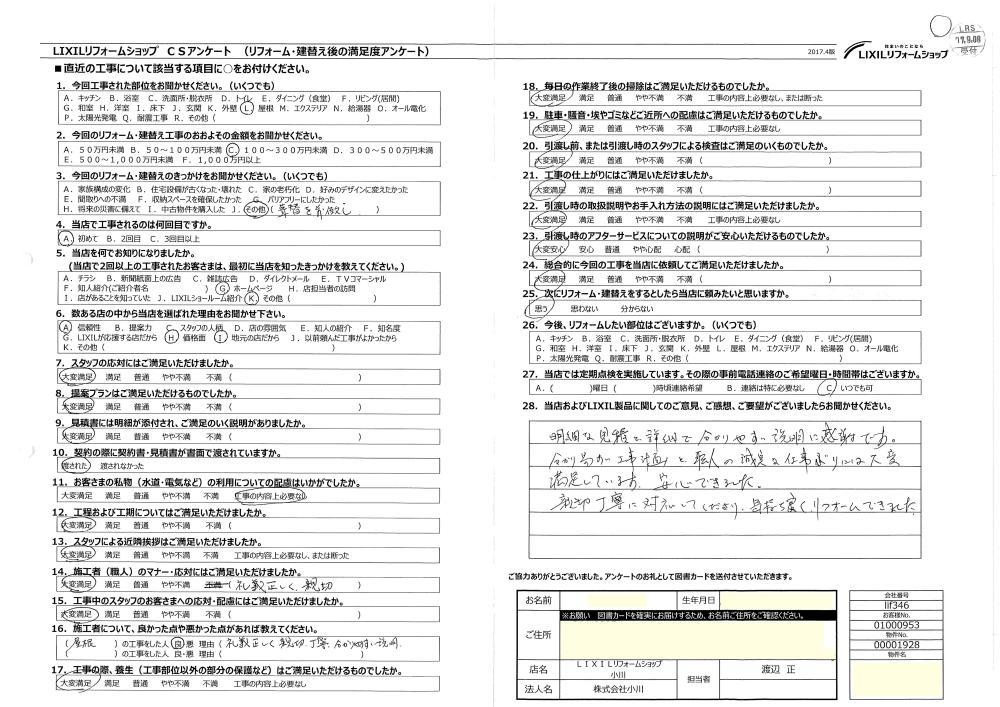 LRS
17.9.08
受付
LIXILリフォームショップ ＣＳアンケート （リフォーム・建替え後の満足度アンケート）
2017.4版
住まいのことなら
LIXILリフォームショップ
■直近の工事について該当する項目に○をお付けください。
1．今回工事された部位をお聞かせください。（いくつでも）
Ａ．キッチン Ｂ．浴室 Ｃ．洗面所・脱衣所 Ｄ．トイレ Ｅ．ダイニング（食堂） Ｆ．リビング(居間)
Ｇ．和室 Ｈ．洋室 Ｉ．床下 Ｊ．玄関 Ｋ．外壁 Ｌ．屋根 Ｍ．エクステリア Ｎ．給湯器 Ｏ．オール電化
Ｐ．太陽光発電 Ｑ．耐震工事 Ｒ．その他（ ）
2．今回のリフォーム・建替え工事のおおよその金額をお聞かせください。
Ａ．５０万円未満 Ｂ．５０～１００万円未満 Ｃ．１００～３００万円未満 Ｄ．３００～５００万円未満
Ｅ．５００～１,０００万円未満 Ｆ．１,０００万円以上
3．今回のリフォーム・建替えのきっかけをお聞かせください。（いくつでも）
Ａ．家族構成の変化 Ｂ．住宅設備が古くなった・壊れた Ｃ．家の老朽化 Ｄ．好みのデザインに変えたかった
Ｅ．間取りへの不満 Ｆ．収納スペースを確保したかった Ｇ．バリアフリーにしたかった
Ｈ．将来の災害に備えて Ｉ．中古物件を購入した Ｊ．その他（ ）
4．当店で工事されるのは何回目ですか。
Ａ．初めて Ｂ．2回目 Ｃ．3回目以上
5．当店を何でお知りになりましたか。
（当店で2回以上の工事されたお客さまは、最初に当店を知ったきっかけを教えてください。）
Ａ．チラシ Ｂ．新聞紙面上の広告 Ｃ．雑誌広告 Ｄ．ダイレクトメール Ｅ．ＴＶコマーシャル
Ｆ．知人紹介(ご紹介者名 ) Ｇ．ホームページ Ｈ．店担当者の訪問
Ｉ．店があることを知っていた Ｊ．LIXILショールーム紹介 Ｋ．その他（ ）
6．数ある店の中から当店を選ばれた理由をお聞かせ下さい。
Ａ．信頼性 Ｂ．提案力 Ｃ．スタッフの人柄 Ｄ．店の雰囲気 Ｅ．知人の紹介 Ｆ．知名度
Ｇ．LIXILが応援する店だから Ｈ．価格面 Ｉ．地元の店だから Ｊ．以前頼んだ工事がよかったから
Ｋ．その他（ ）
7．スタッフの応対にはご満足いただけましたか。
大変満足 満足 普通 やや不満 不満 （ ）
8．提案プランはご満足いただけるものでしたか。
大変満足 満足 普通 やや不満 不満 （ ）
9．見積書には明細が添付され、ご満足のいく説明がありましたか。
大変満足 満足 普通 やや不満 不満 （ ）
10．契約の際に契約書・見積書が書面で渡されていますか。
渡された 渡されなかった
11．お客さまの私物（水道・電気など）の利用についての配慮はいかがでしたか。
大変満足 満足 普通 やや不満 不満 工事の内容上必要なし
12．工程および工期についてはご満足いただけましたか。
大変満足 満足 普通 やや不満 不満 （ ）
13．スタッフによる近隣挨拶はご満足いただけましたか。
大変満足 満足 普通 やや不満 不満 工事の内容上必要なし、または断った
14．施工者（職人）のマナー・応対にはご満足いただけましたか。
大変満足 満足 普通 やや不満 不満 （礼義正しく、親切 ）
15．工事中のスタッフのお客さまへの応対・配慮にはご満足いただけましたか。
大変満足 満足 普通 やや不満 不満 （ ）
16．施工者について、良かった点や悪かった点があれば教えてください。
（屋根 ）の工事をした人 良・悪 理由（礼義正しく親切、丁寧、分かりやすい説明 ）
（ ）の工事をした人 良・悪 理由（ ）
17．工事の際、養生（工事部位以外の部分の保護など）はご満足いただけるものでしたか。
大変満足 満足 普通 やや不満 不満 工事の内容上必要なし
18．毎日の作業終了後の掃除はご満足いただけるものでしたか。
大変満足 満足 普通 やや不満 不満 工事の内容上必要なし、または断った
19．駐車・騒音・埃やゴミなどご近所への配慮はご満足いただけるものでしたか。
大変満足 満足 普通 やや不満 不満 工事の内容上必要なし
20．引渡し前、または引渡し時のスタッフによる検査はご満足のいくものでしたか。
大変満足 満足 普通 やや不満 不満 （ ）
21．工事の仕上がりにはご満足いただけましたか。
大変満足 満足 普通 やや不満 不満 （ ）
22．引渡し時の取扱説明やお手入れ方法の説明にはご満足いただけましたか。
大変満足 満足 普通 やや不満 不満 工事の内容上必要なし
23．引渡し時のアフターサービスについての説明がご安心いただけるものでしたか。
大変安心 安心 普通 やや心配 心配 （ ）
24．総合的に今回の工事を当店に依頼してご満足いただけましたか。
大変満足 満足 普通 やや不満 不満 （ ）
25．次にリフォーム・建替えをするとしたら当店に頼みたいと思いますか。
思う 思わない 分からない
26．今後、リフォームしたい部位はございますか。（いくつでも）
Ａ．キッチン Ｂ．浴室 Ｃ．洗面所・脱衣所 Ｄ．トイレ Ｅ．ダイニング（食堂） Ｆ．リビング(居間)
Ｇ．和室 Ｈ．洋室 Ｉ．床下 Ｊ．玄関 Ｋ．外壁 Ｌ．屋根 Ｍ．エクステリア Ｎ．給湯器 Ｏ．オール電化
Ｐ．太陽光発電 Ｑ．耐震工事 Ｒ．その他（ ）
27．当店では定期点検を実施しています。その際の事前電話連絡のご希望曜日・時間帯はございますか。
Ａ．（ ）曜日（ ）時頃連絡希望 Ｂ．連絡は特に必要なし Ｃ．いつでも可
28．当店およびLIXIL製品に関してのご意見、ご感想、ご要望がございましたらお聞かせください。
明細な見積と詳細で分かりやすい説明に感謝です。
分かり易い工事計画と職人の誠実な仕事ぶりには大変
満足しています。安心できました。
親切丁寧に対応してくださり、気持ち良くリフォームできました
ご協力ありがとうございました。アンケートのお礼として図書カードを送付させていただきます。
お名前 生年月日
※お願い 図書カードを確実にお届けするため、お名前ご住所をご確認ください。
ご住所
店名 ＬＩＸＩＬリフォームショップ 小川
担当者 渡辺 正
法人名 株式会社小川
会社番号
lif346
お客様No.
01000953
物件No.
00001928
物件名